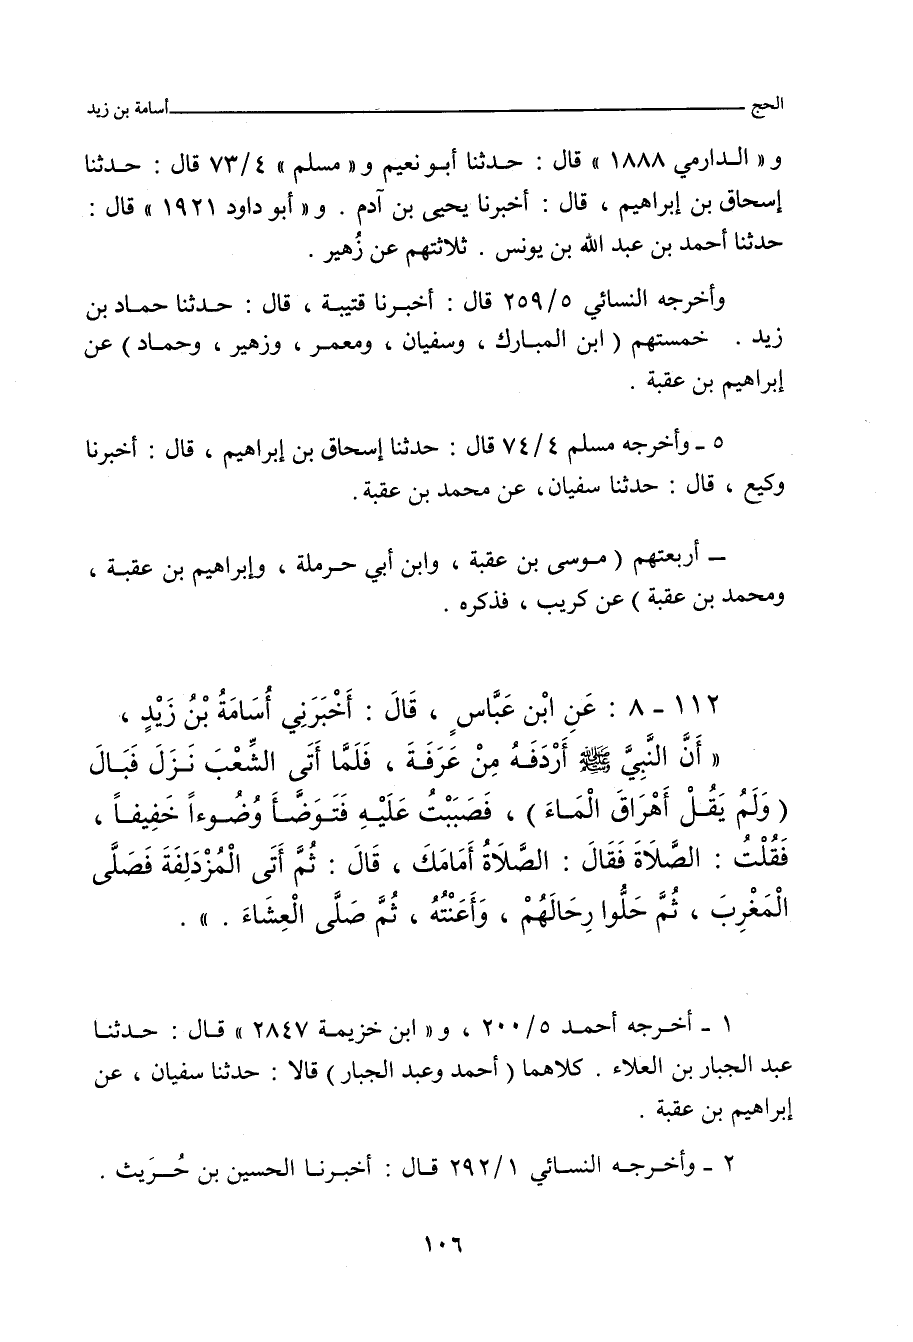 الحج أسامة بن زيد
و « الدارمي ١٨٨٨ » قال : حدثنا أبو نعيم و« مسلم » ٧٣/٤ قال : حدثنا
إسحاق بن إبراهيم ، قال : أخبرنا يحيى بن آدم . و « أبو داود ١٩٢١ » قال :
حدثنا أحمد بن عبد الله بن يونس . ثلاثتهم عن زُهير .
وأخرجه النسائي ٢٥٩/٥ قال : أخبرنا قتيبة ، قال : حدثنا حماد بن
زيد . خمستهم ( ابن المبارك ، وسفيان ، ومعمر ، وزهير ، وحماد ) عن
إبراهيم بن عقبة .
٥ ـ وأخرجه مسلم ٧٤/٤ قال : حدثنا إسحاق بن إبراهيم ، قال : أخبرنا
وكيع ، قال : حدثنا سفيان، عن محمد بن عقبة .
ــ أربعتهم ( موسى بن عقبة ، وابن أبي حرملة ، وإبراهيم بن عقبة ،
ومحمد بن عقبة ) عن كريب ، فذكره .
١١٢ - ٨ : عَنِ ابْنِ عَبَّاسٍ ، قَالَ : أَخْبَرَنِي أُسَامَةُ بْنُ زَيْدٍ ،
« أَنَّ النَّبِيَّ ﷺ أَرْدَفَهُ مِنْ عَرَفَةَ ، فَلَمَّا أَتَى الشِّعْبَ نَزَلَ فَبَالَ
( وَلَمْ يَقُلْ أَهْرَاقَ الْمَاءَ ) ، فَصَبَبْتُ عَلَيْهِ فَتَوَضَّأَ وُضُوءاً خَفِيفاً ،
فَقُلْتُ : الصَّلَاةَ فَقَالَ : الصَّلَاةُ أَمَامَكَ ، قَالَ : ثُمَّ أَتَى الْمُزْدَلِفَةَ فَصَلَّى
الْمَغْرِبَ ، ثُمَّ حَلُّوا رِحَالَهُمْ ، وَأَعَنْتُهُ ، ثُمَّ صَلَّى الْعِشَاءَ . » .
١ ـ أخرجه أحمد ٢٠٠/٥ ، و« ابن خزيمة ٢٨٤٧ » قال : حدثنا
عبد الجبار بن العلاء . كلاهما ( أحمد وعبد الجبار ) قالا : حدثنا سفيان ، عن
إبراهيم بن عقبة .
٢ ـ وأخرجه النسائي ٢٩٢/١ قال : أخبرنا الحسين بن حُرَيث .
١٠٦